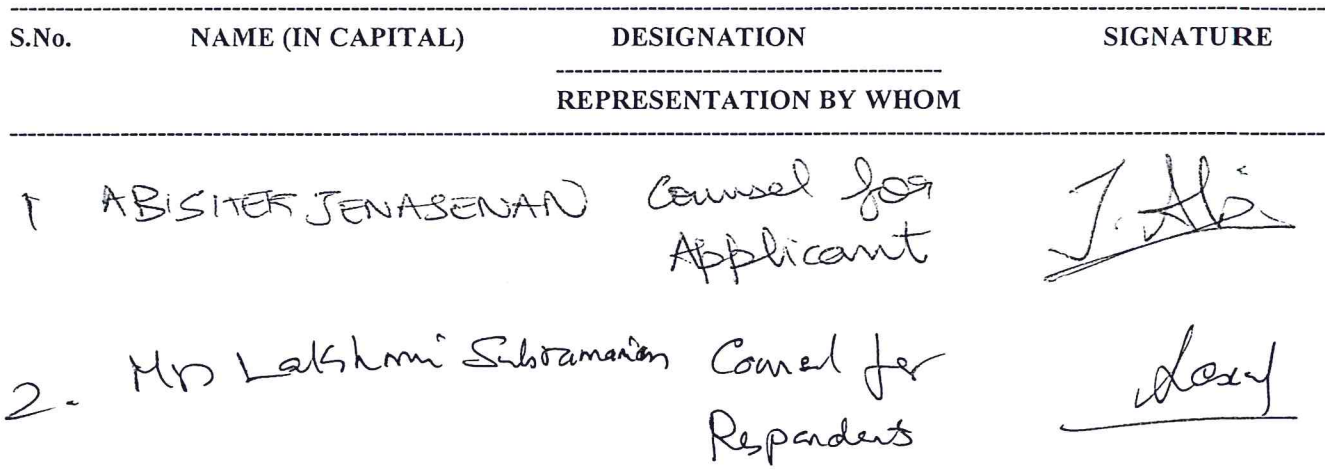 S.No. NAME (IN CAPITAL) DESIGNATION SIGNATURE
REPRESENTATION BY WHOM
1 ABISITEK JENASENAN Counsel for
Applicant J. Abi
2. Mrs Lakshmi Subramanian Counsel for
Respondents